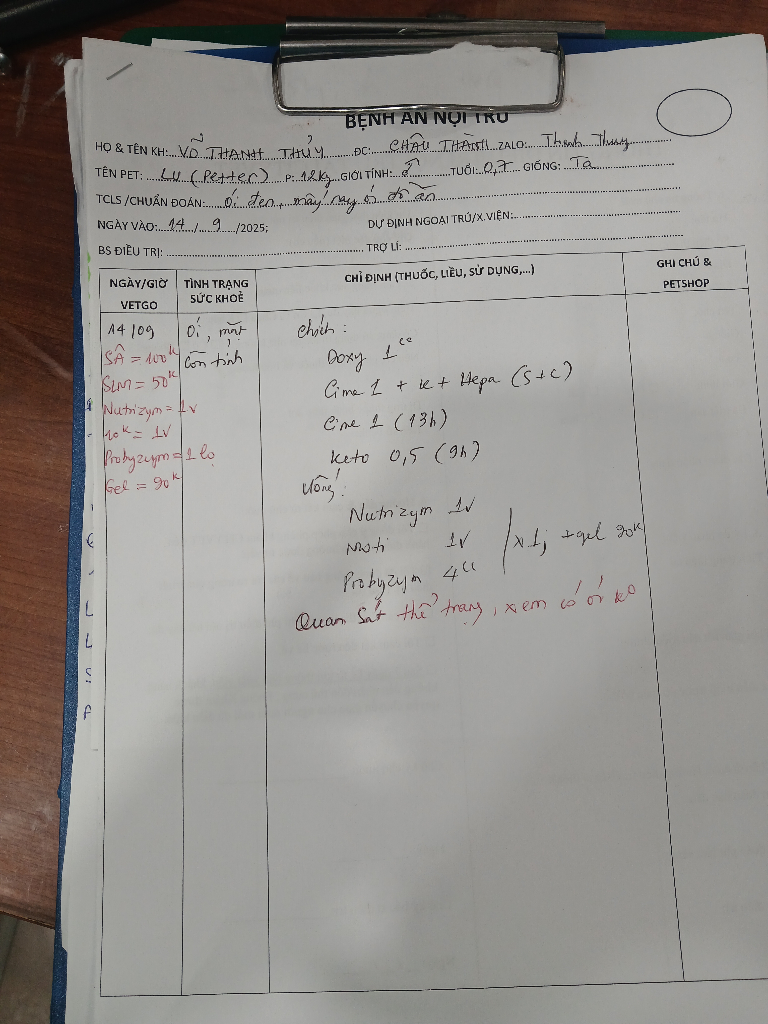 BỆNH ÁN NỘI TRÚ
HỌ & TÊN KH: VÕ THANH THỦY ĐC: CHÂU THÀNH ZALO: Thanh Thuy
TÊN PET: LU (Petter) P: 12kg GIỚI TÍNH: ♂ TUỔI: 0,7 GIỐNG: Ta
TCLS /CHUẨN ĐOÁN: ói đen, mấy nay ói đồ ăn
NGÀY VÀO: 14 / 9 /2025; DỰ ĐỊNH NGOẠI TRÚ/X.VIỆN:
BS ĐIỀU TRỊ: TRỢ LÍ:
NGÀY/GIỜ VETGO
TÌNH TRẠNG SỨC KHOẺ
CHỈ ĐỊNH (THUỐC, LIỀU, SỬ DỤNG,...)
GHI CHÚ & PETSHOP
14/09
SÂ = 100k
SLM = 50k
Nutrizym = 1v
10k = 1v
Probyzym = 1 lọ
Gel = 90k
Ói, mệt,
còn tỉnh
chích:
Doxy 1cc
Cime 1 + K + Hepa (S+C)
Cime 1 (13h)
Keto 0,5 (9h)
Uống:
Nutrizym 1v
Moti 1v
Probyzym 4cc
x1; +gel 90k
Quan sát thể trạng, xem có ói ko